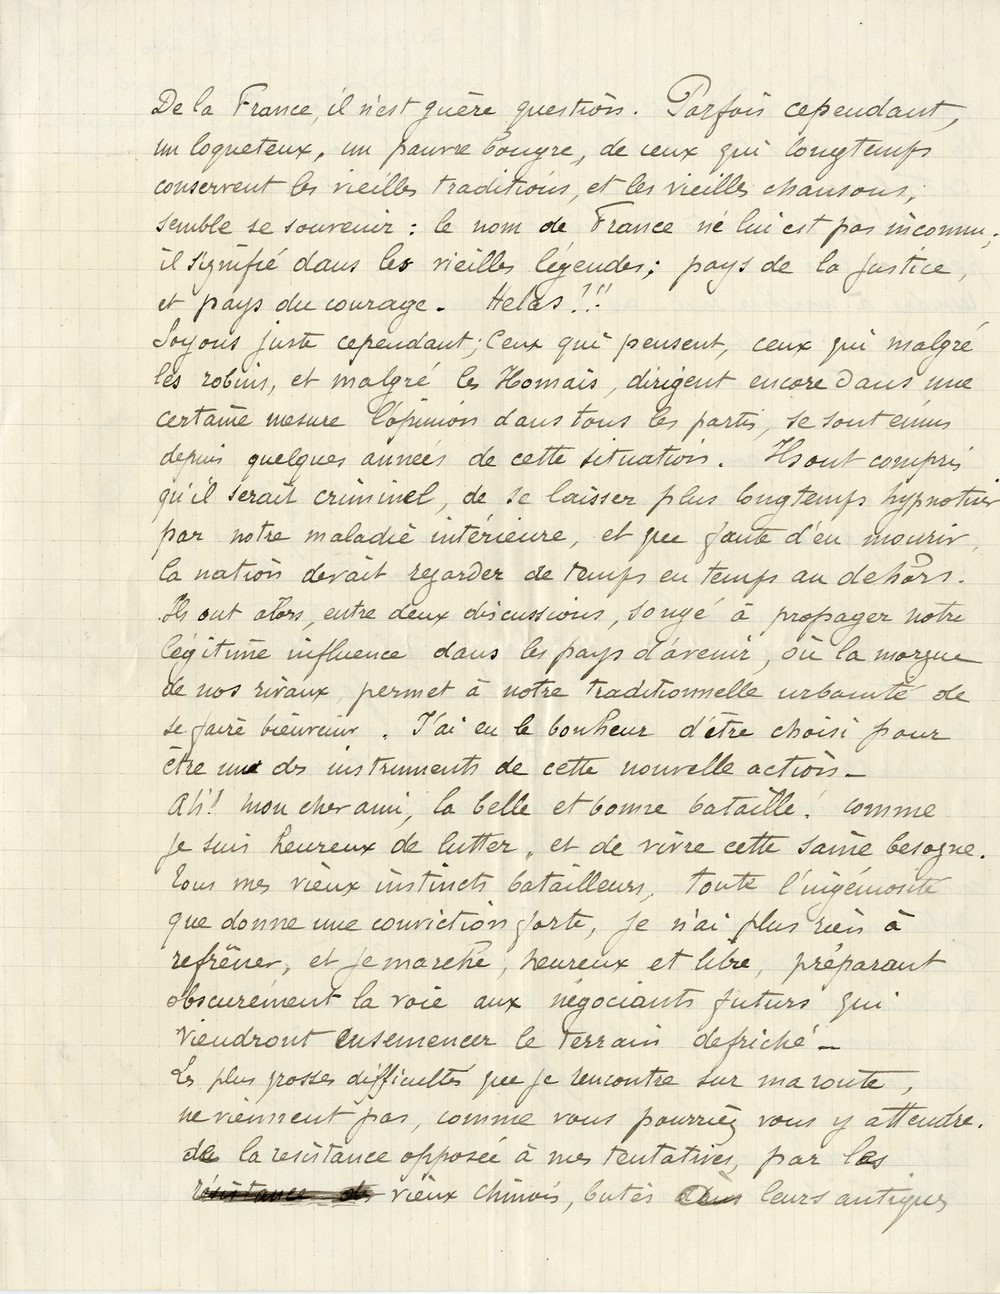 De la France, il n'est guère question. Parfois cependant,
un loqueteux, un pauvre bougre, de ceux qui longtemps
conservent les vieilles traditions, et les vieilles chansons,
semble se souvenir : le nom de France ne lui est pas inconnu;
il signifie dans les vieilles légendes; pays de la justice,
et pays du courage. Helas!!!
Soyons juste cependant; Ceux qui pensent, ceux qui malgré
les robins, et malgré les Homais, dirigent encore dans une
certaine mesure l'opinion dans tous les partis, se sont émus
depuis quelques années de cette situation. Ils ont compris
qu'il serait criminel, de se laisser plus longtemps hypnotiser
par notre maladie intérieure, et que faute d'en mourir,
la nation devait regarder de temps en temps au dehors.
Ils ont alors, entre deux discussions, songé à propager notre
légitime influence dans les pays d'avenir, où la morgue
de nos rivaux, permet à notre traditionnelle urbanité de
se faire bienvenir. J'ai eu le bonheur d'être choisi pour
être un des instruments de cette nouvelle action_
Ah! mon cher ami, la belle et bonne bataille! comme
je suis heureux de lutter, et de vivre cette saine besogne.
Tous mes vieux instincts batailleurs, toute l'ingéniosité
que donne une conviction forte, je n'ai plus rien à
refrêner, et je marche, heureux et libre, préparant
obscurément la voie aux négociants futurs qui
viendront ensemencer le terrain defriché_
Les plus grosses difficultés que je rencontre sur ma route,
ne viennent pas, comme vous pourriez vous y attendre.
de la resistance opposée à mes tentatives, par les
résistance des vieux Chinois, butés dans leurs antiques